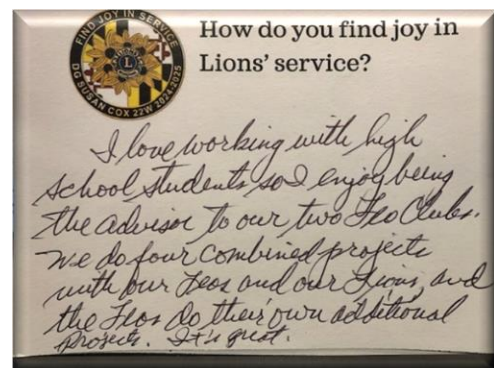 FIND JOY IN SERVICE
L
DG SUSAN COX 22W 2024-2025
How do you find joy in
Lions' service?
I love working with high
school students so I enjoy being
the advisor to our two Leo Clubs.
We do four combined projects
with our Leos and our Lions, and
the Leos do their own additional
projects. It's great.